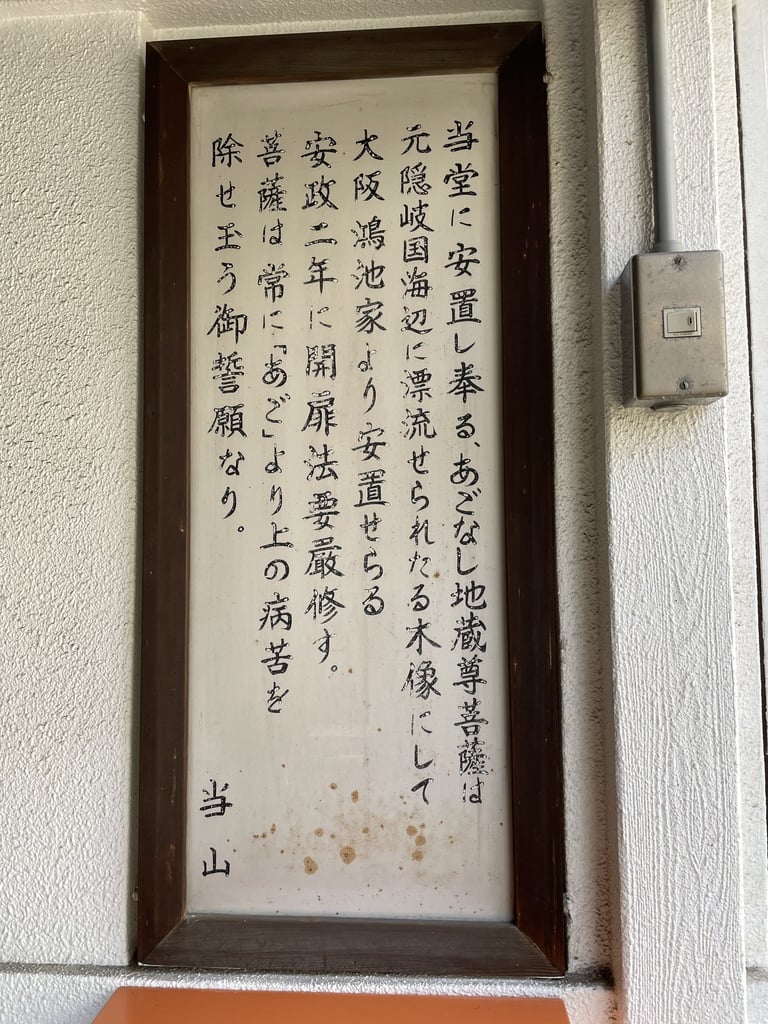 当堂に安置し奉る、あごなし地蔵尊菩薩は
元隠岐国海辺に漂流せられたる木像にして
大阪鴻池家より安置せらる
安政二年に開扉法要厳修す。
菩薩は常に「あご」より上の病苦を
除せ玉う御誓願なり。
当山